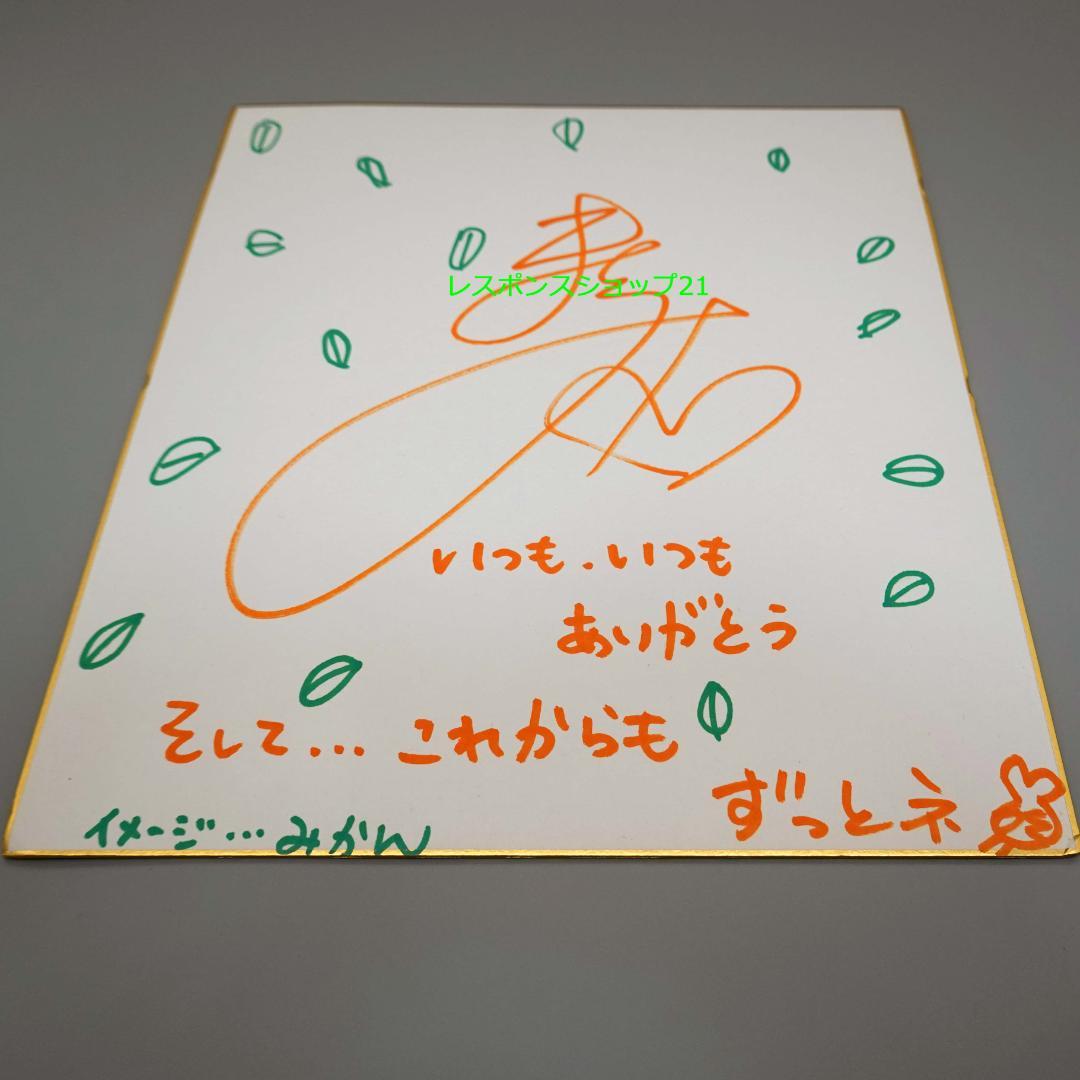 レスポンスショップ21
いつも.いつも
ありがとう
そして... これからも
ずっとネ
イメージ... みかん